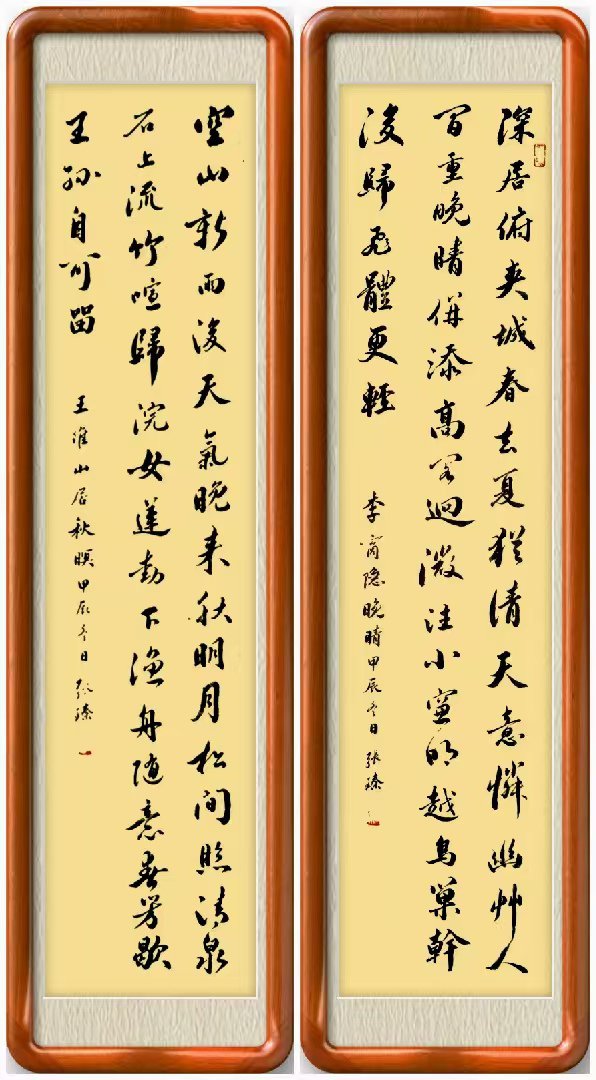 深居俯夾城春去夏猶清天意憐幽艸人
间重晚晴併添高阁迥微注小窗明越鳥巢幹
後歸飛體更輕
李商隐晚晴甲辰冬日張臻
空山新雨後天氣晚来秋明月松间照清泉
石上流竹喧歸浣女蓮動下渔舟随意春芳歇
王孙自可留
王维山居秋暝甲辰冬日張臻